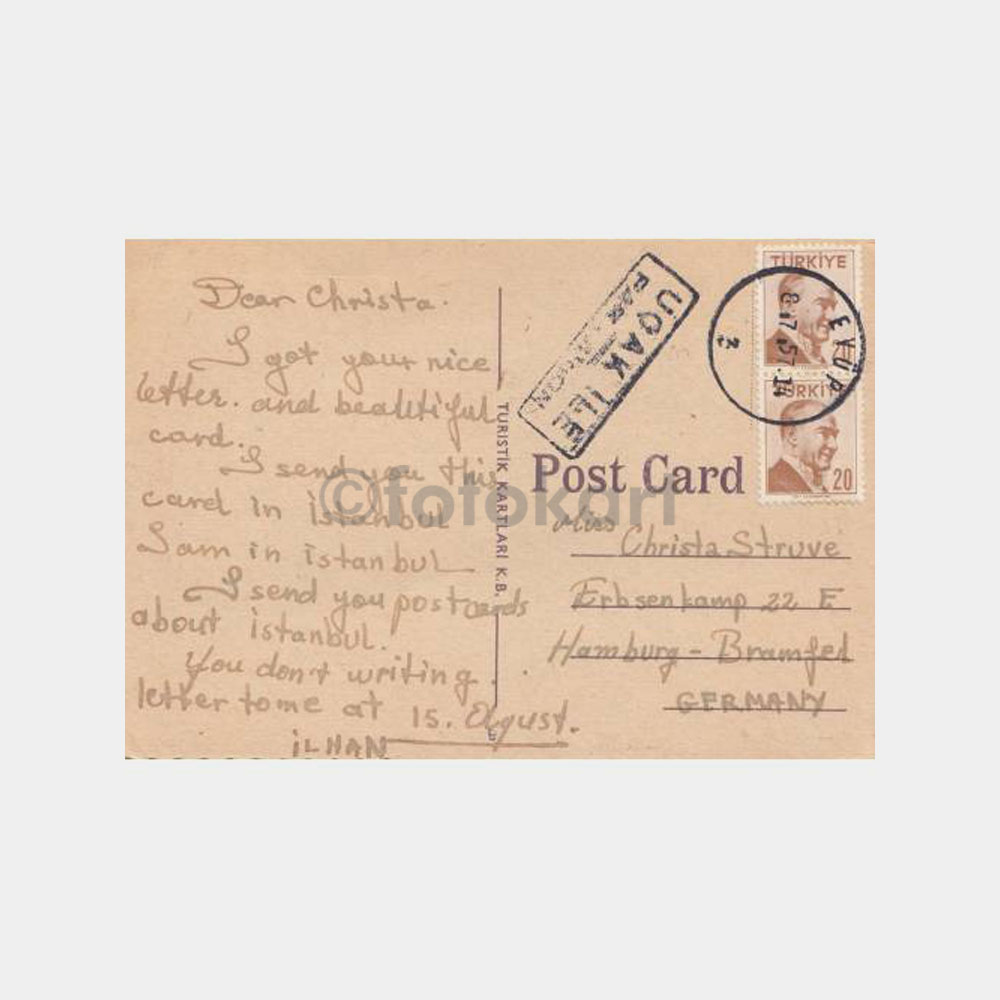 Dear Christa.
I got your nice
letter. and beautiful
card.
I send you this
card in istanbul
I am in istanbul
I send you postcards
about istanbul.
You don't writing.
letter to me at 15. Agust.
iLHAN
TURISTİK KARTLARİ K.B.
UÇAK İLE
PAR AVION
TÜRKİYE
TÜRKİYE
20
EYÜP
8.7.57.14
3
Post Card
Miss
Christa Struve
Erbsenkamp 22 E
Hamburg - Bramfed
GERMANY
©fotokart